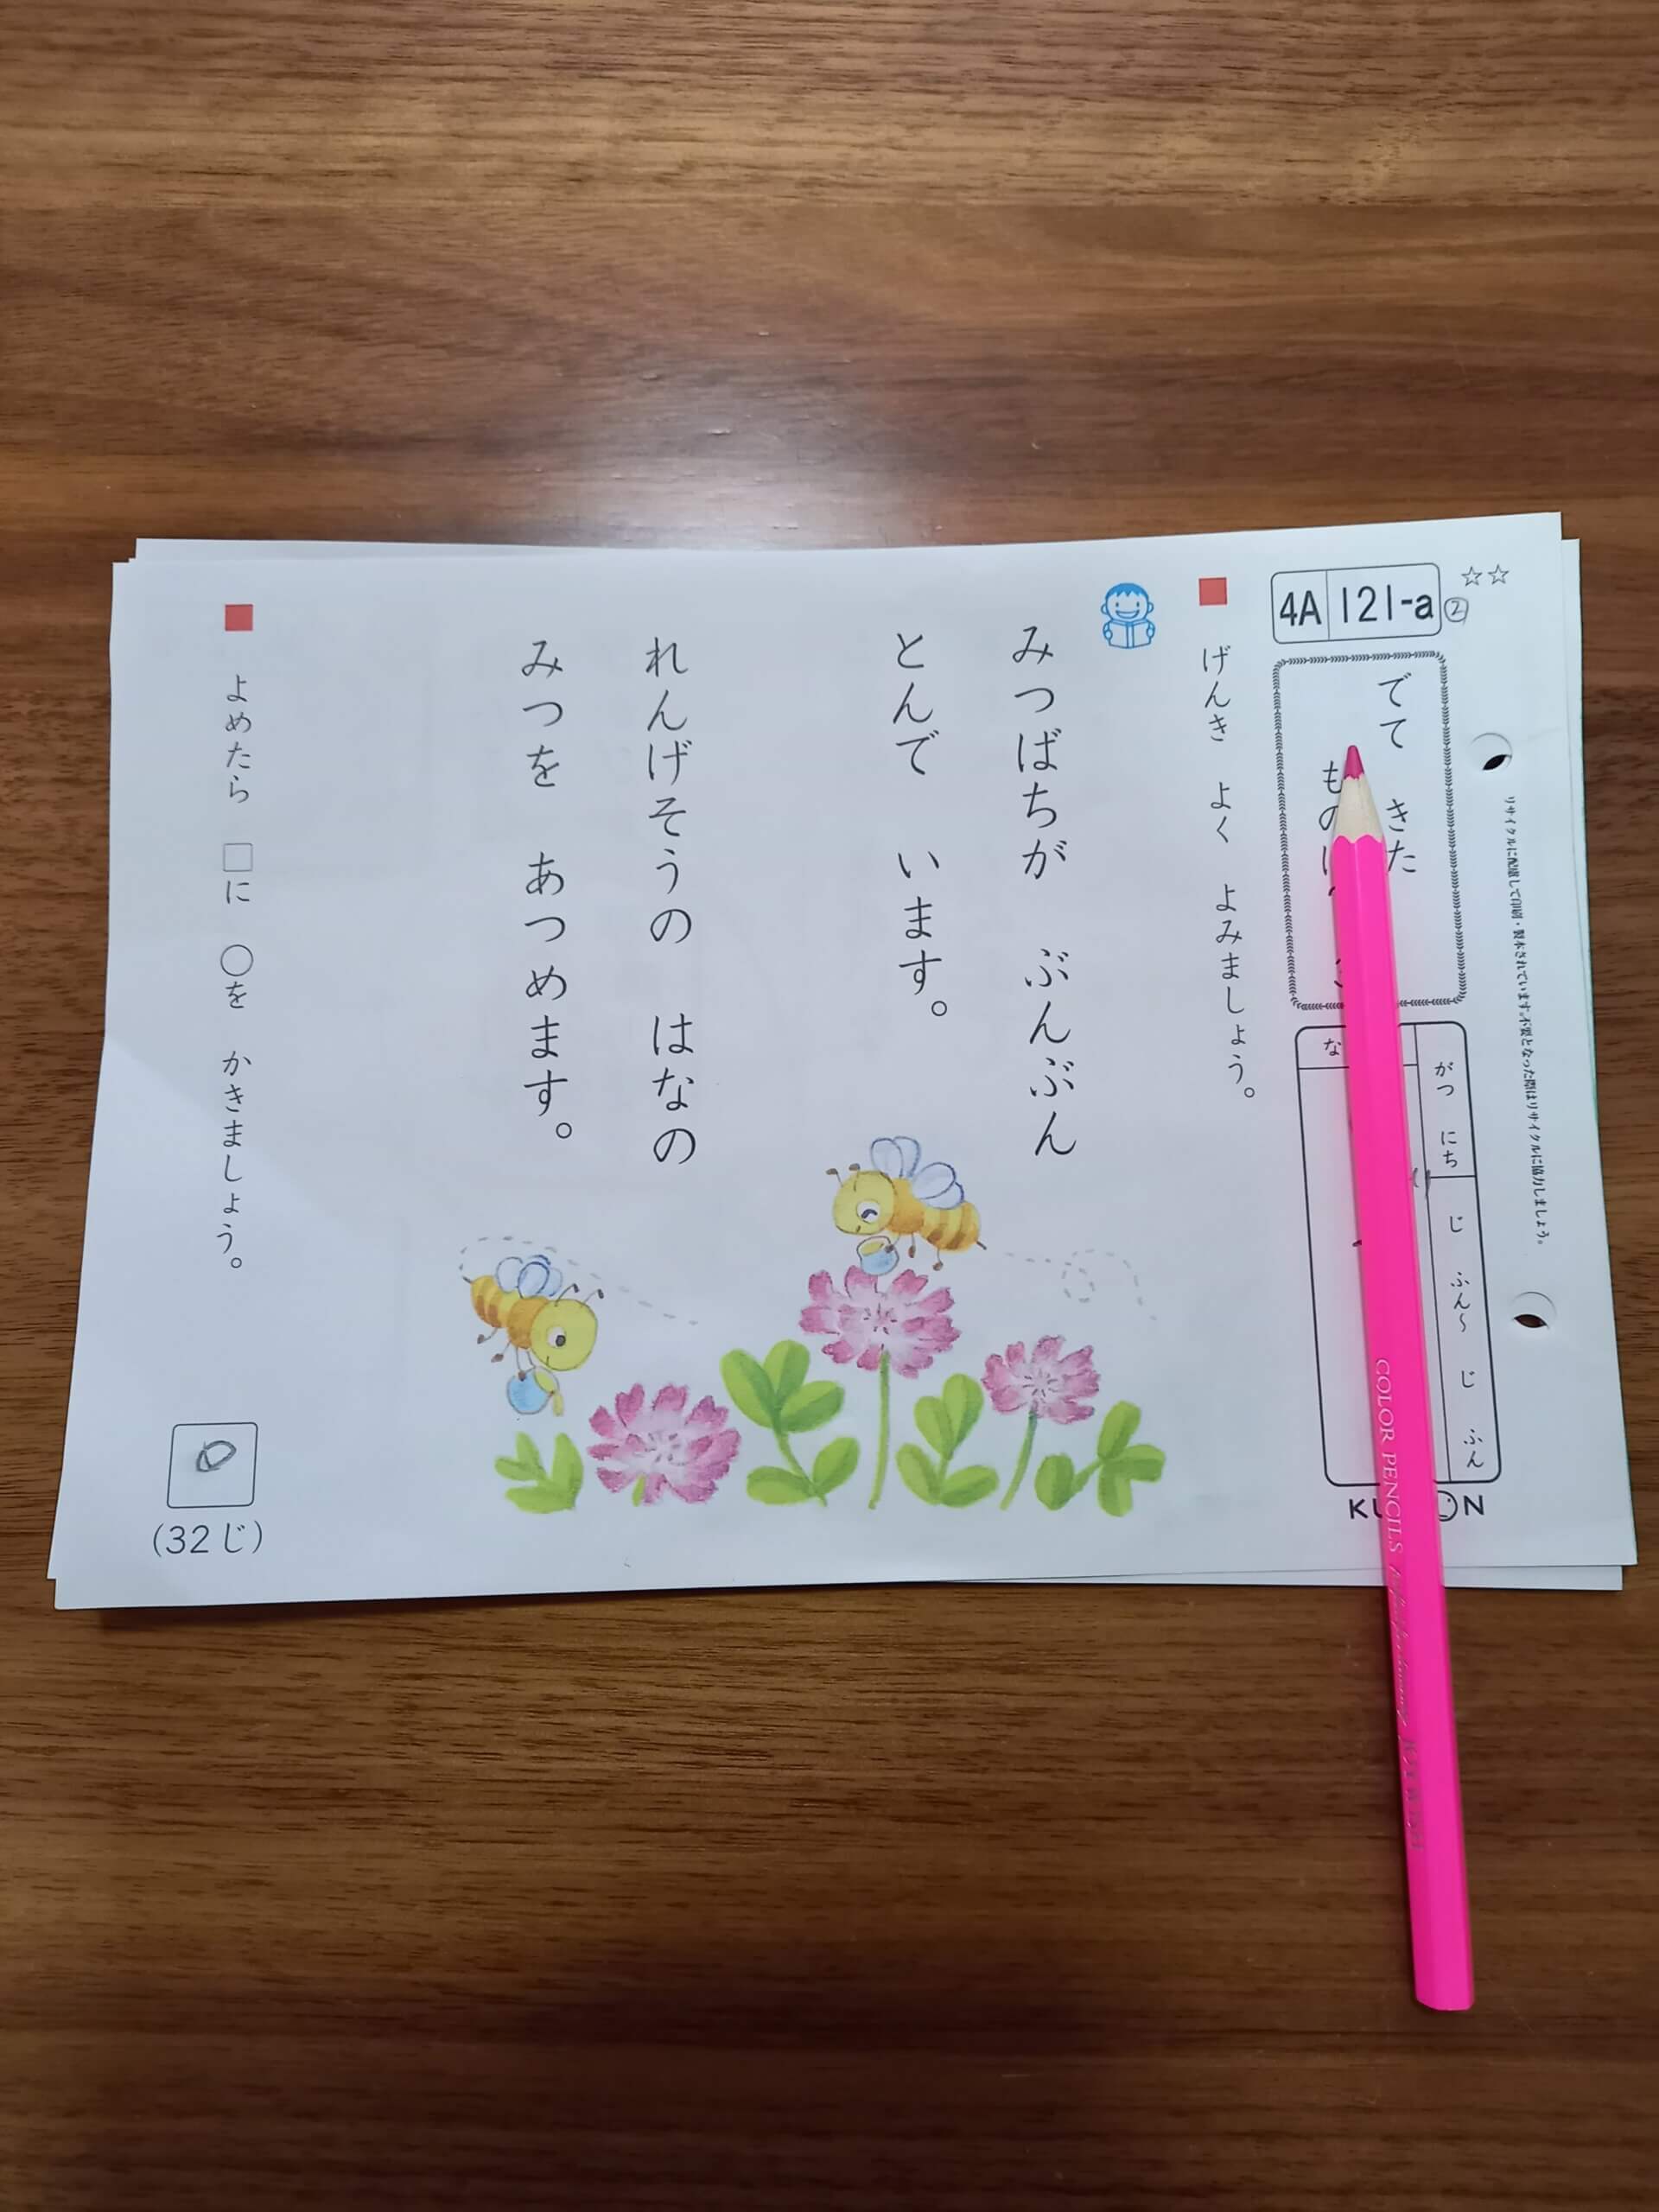 ☆☆
4A 121-a ②
リサイクルに配慮して印刷・製本されています。不要となった際はリサイクルに協力しましょう。
でて きた
がつ にち
じ ふん〜 じ ふん
げんき よく よみましょう。
みつばちが ぶんぶん
とんで います。
れんげそうの はなの
みつを あつめます。
よめたら □に ○を かきましょう。
(32じ)